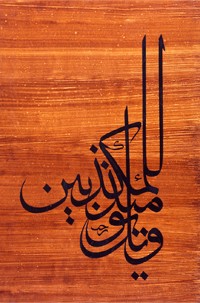 ويل يومئذ للمكذبين